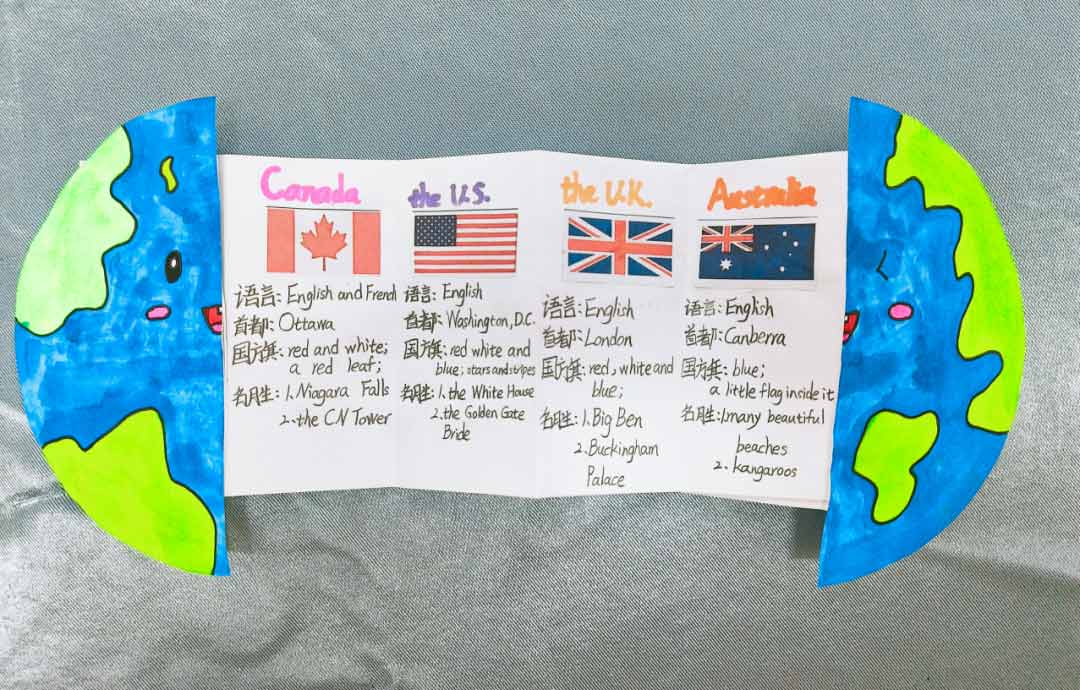 Canada
语言: English and French
首都: Ottawa
国方旗: red and white;
a red leaf;
名胜: 1. Niagara Falls
2. the CN Tower
the U.S.
语言: English
首都: Washington, D.C.
国方旗: red white and
blue; stars and stripes
名胜: 1. the White House
2. the Golden Gate
Bride
the U.K.
语言: English
首都: London
国方旗: red, white and
blue;
名胜: 1. Big Ben
2. Buckingham
Palace
Australia
语言: English
首都: Canberra
国方旗: blue;
a little flag inside it
名胜: 1. many beautiful
beaches
2. kangaroos